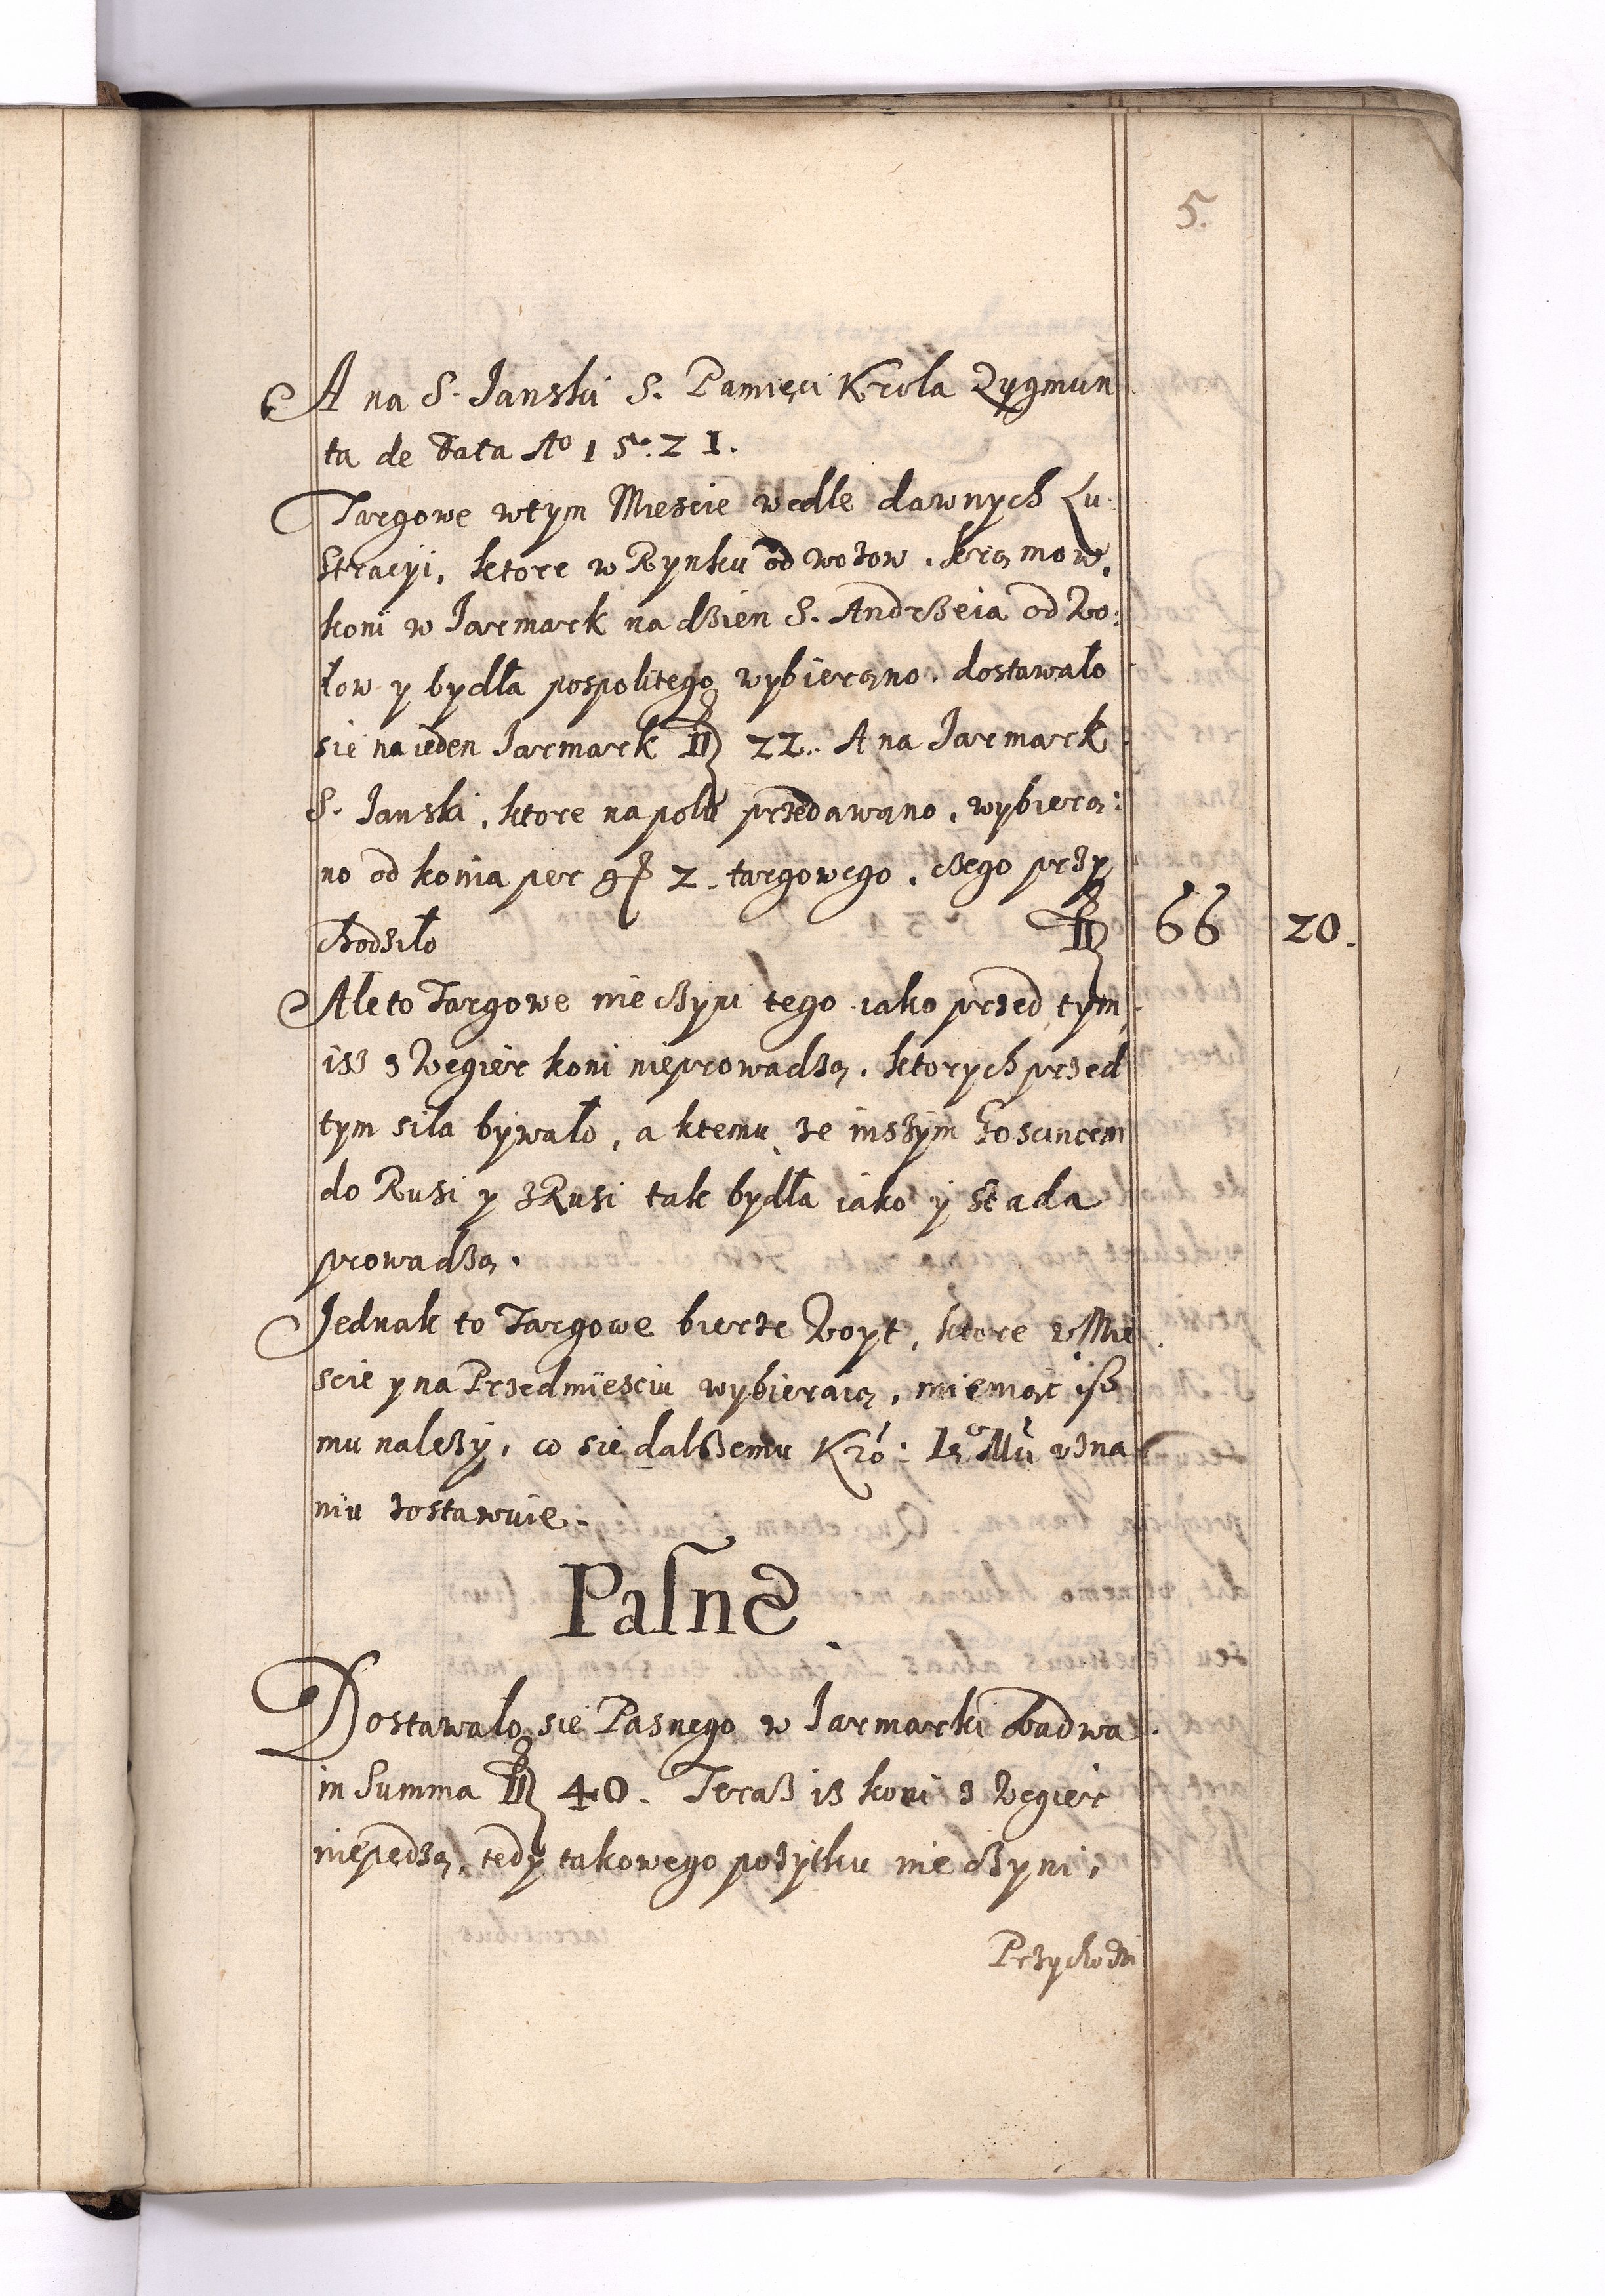 5.
A na S. Janski S. Pamięci Krola Zygmun
ta de data Ao 1521.
Targowe wtym Miescie wedle dawnych Lu
stracyi, ktore w Rynku od wozow, kramow,
koni w Jarmark na dzien S. Andrzeia od Wo:
łow y bydła pospolitego wybierano, dostawało
sie na ieden Jarmark fl 22. A na Jarmark
S. Janski, ktore na polu przedawano, wybiera:
no od konia per gr 2. targowego, czego przy
chodziło fl 66 20.
Ale to Targowe nie czyni tego iako przed tym,
isz z Węgier koni nieprowadzą, ktorych przed
tym siła bywało, a ktemu ze inszym Goscincem
do Rusi y z Rusi tak bydła iako y stada
prowadzą.
Jednak to Targowe bierze Woyt, ktore w Mie
scie y na Przedmiesciu wybieraią, mieniąc isz
mu nalezy, co sie dalszemu Kro: Je Mci uzna
niu zostawuie.
Pasne
Dostawało sie Pasnego w Jarmarki obadwa
in Summa fl 40. Teraz iz koni z Węgier
niepędzą, tedy takowego pozytku nie czyni,
Przychodzi